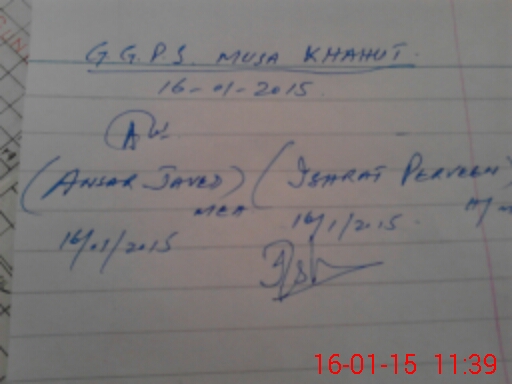 G.G.P.S. MUSA KHAHUT.
16-01-2015.
(ANSAR JAVED)
MEA
16/01/2015
(ISHRAT PERVEEN)
16/1/2015.
16-01-15 11:39